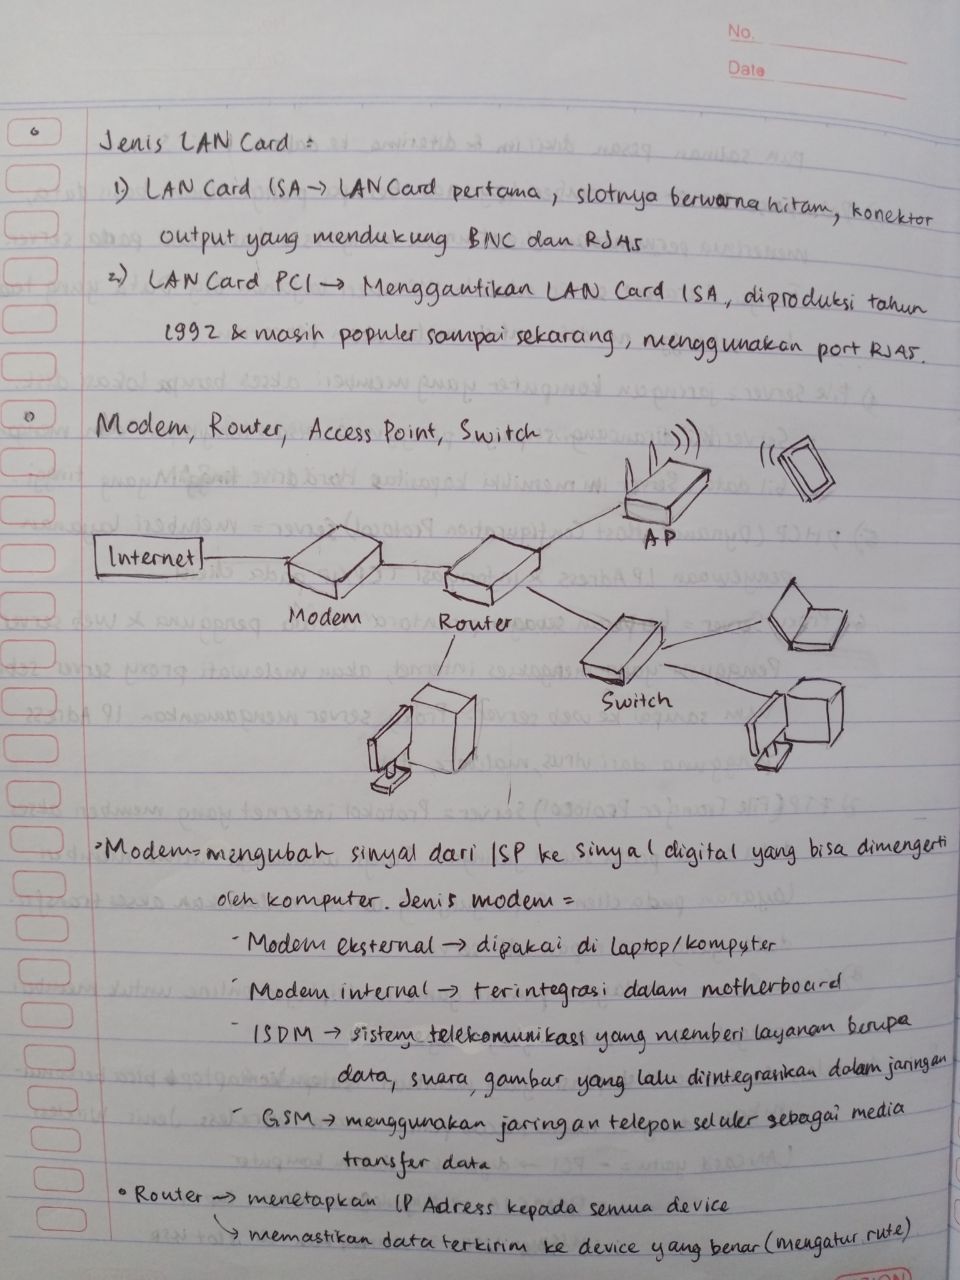 No.
Date
Jenis LAN Card =
1) LAN Card ISA → LAN Card pertama, slotnya berwarna hitam, konektor
output yang mendukung BNC dan RJ45
2) LAN Card PCI → Menggantikan LAN Card ISA, diproduksi tahun
1992 & masih populer sampai sekarang, menggunakan port RJ45.
Modem, Router, Access Point, Switch
Internet
Modem
Router
AP
Switch
• Modem = mengubah sinyal dari ISP ke sinyal digital yang bisa dimengerti
oleh komputer. Jenis modem =
- Modem eksternal → dipakai di laptop/komputer
- Modem internal → terintegrasi dalam motherboard
- ISDM → sistem telekomunikasi yang memberi layanan berupa
data, suara, gambar yang lalu diintegrasikan dalam jaringan
- GSM → menggunakan jaringan telepon seluler sebagai media
transfer data
• Router → menetapkan IP Adress kepada semua device
↳ memastikan data terkirim ke device yang benar (mengatur rute)